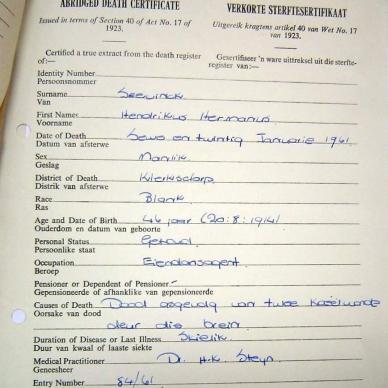 ABRIDGED DEATH CERTIFICATE
VERKORTE STERFTESERTIFIKAAT
Issued in terms of Section 40 of Act No. 17 of 1923.
Uitgereik kragtens artikel 40 van Wet No. 17 van 1923.
Certified a true extract from the death register of:—
Gesertifiseer 'n ware uittreksel uit die sterfteregister van:—
Identity Number
Persoonsnommer
Surname
Van
First Names Hendrikus Hermanus
Voorname
Date of Death Sewe en twintig Januarie 1961
Datum van afsterwe
Sex Manlik
Geslag
District of Death Klerksdorp
Distrik van afsterwe
Race Blank
Ras
Age and Date of Birth 46 jaar (20:8:1914)
Ouderdom en datum van geboorte
Personal Status Getroud
Persoonlike staat
Occupation Eiendomsagent
Beroep
Pensioner or Dependent of Pensioner
Gepensioneerde of afhanklike van gepensioneerde
Causes of Death Dood as gevolg van twee koëelwonde
Oorsake van dood
deur die brein
Duration of Disease or Last Illness Skielik
Duur van kwaal of laaste siekte
Medical Practitioner D. H.K. Steyn
Geneesheer
Entry Number 84/61